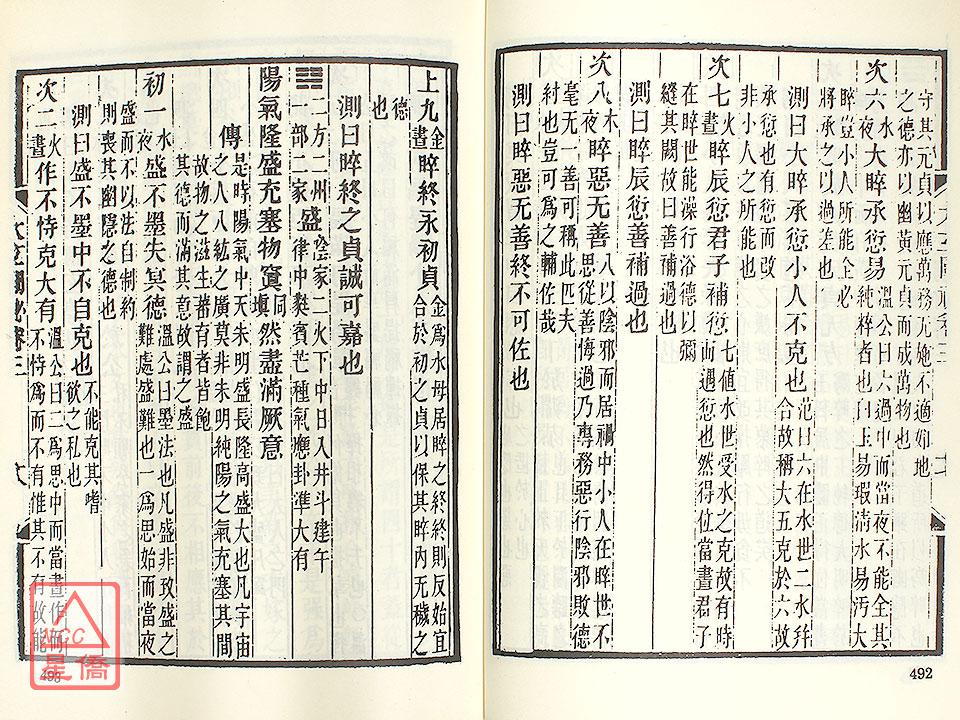 守其元貞以應萬務无施不適如地
之德亦以幽黃元貞而成萬物也
次六水夜大睟承愆易溫公曰六過中而當夜不能全其
純粹者也白玉易瑕淸水易汚大
睟豈小人所能全必
將承之以過差也
測曰大睟承愆小人不克也范曰六在水世二水幷
合故稱大五克於六故
承愆也有愆而改
非小人之所能也
次七火晝睟辰愆君子補愆七値水世受水之克故有時
而遇愆也然得位當晝君子
在睟世能澡行浴德以彌
縫其闕故曰補過也
測曰睟辰愆善補過也
次八木夜睟惡无善八以陰邪而居禍中小人在睟世不
思從善悔過乃專務惡行陰邪敗德
毫无一善可稱此匹夫
紂也豈可爲之輔佐哉
測曰睟惡无善終不可佐也
492
上九金晝睟終永初貞金爲水母居睟之終終則反始宜
合於初之貞以保其睟內无穢之
德
也
測曰睟終之貞誠可嘉也
二方二州一部二家盛陰家二火下中日入井斗建午
律中㽔賓芒種氣應卦準大有
陽氣隆盛充塞物窴同塡然盡滿厥意
傳是時陽氣中天朱明盛長隆高盛大也凡宇宙
之八八紘之廣莫非朱明純陽之氣充塞其間
故物之滋生蕃育者皆飽
其德而滿其意故謂之盛
初一水夜盛不墨失冥德溫公曰墨法也凡盛非攷盛之
難處盛難也一爲思始而當夜
盛而不以法自制約
則喪其幽隱之德也
測曰盛不墨中不自克也不能克其嗜
欲之私也
次二火晝作不恃克大有溫公曰二爲思中而當晝作而
不恃爲而不有惟其不有故能
太玄闡祕卷三
493
NCC
星僑